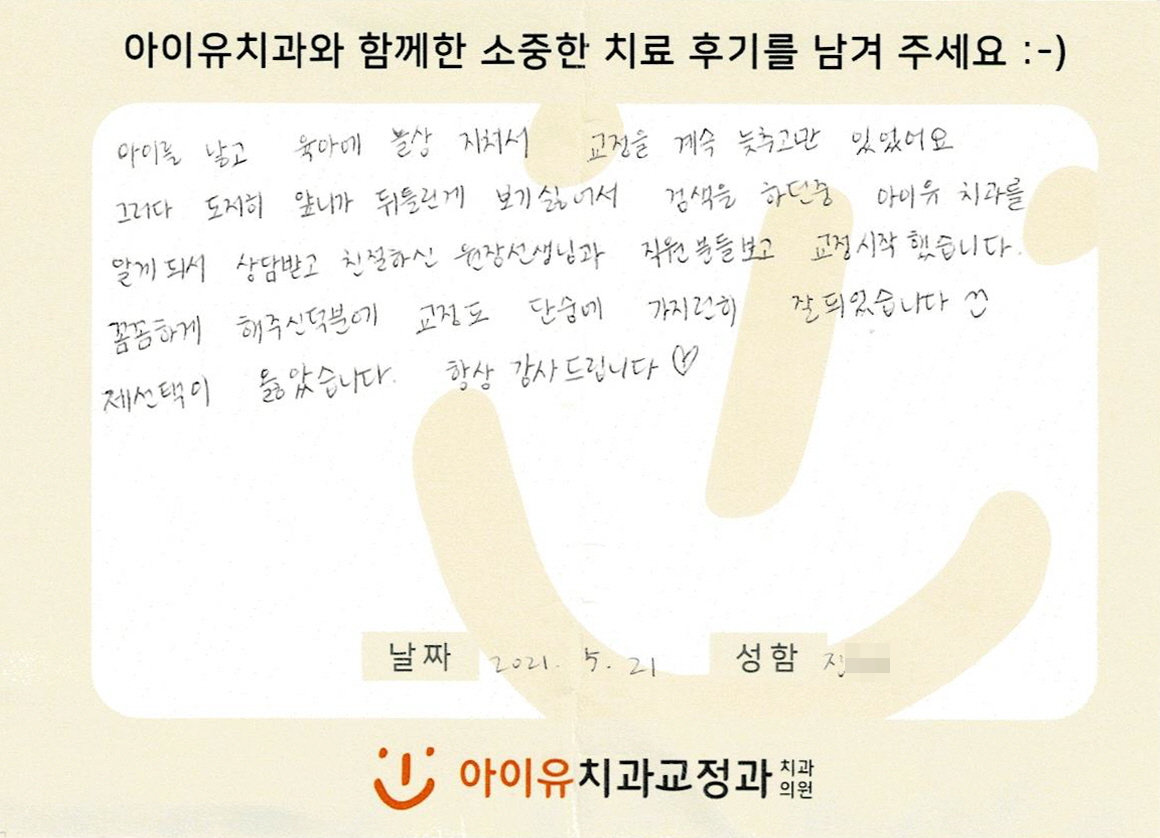 아이유치과와 함께한 소중한 치료 후기를 남겨 주세요 :-)
아이를 낳고 육아에 몸상 지쳐서 교정을 계속 늦추고만 있었어요
그러다 도저히 앞니가 뒤틀린게 보기싫어서 검색을 하던중 아이유 치과를
알게되서 상담받고 친절하신 원장선생님과 직원분들보고 교정시작했습니다.
꼼꼼하게 해주신덕분에 교정도 단숨에 가지런히 잘되있습니다
제선택이 옳았습니다. 항상 감사드립니다 ♡
날짜 2021. 5. 21 성함 정
아이유치과교정과 치과의원